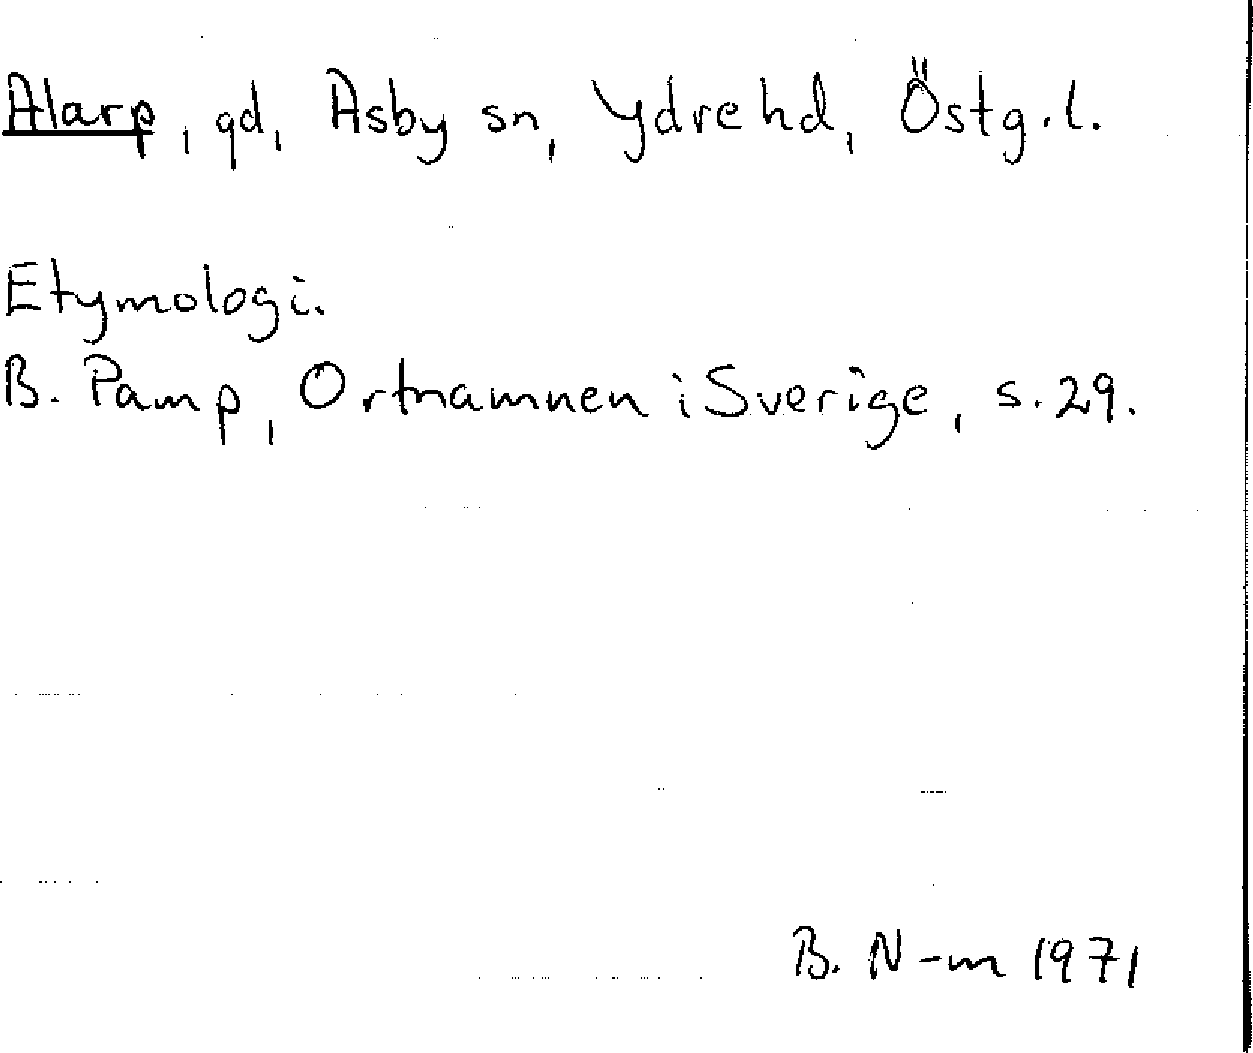 Alarp, gd, Asby sn, Ydre hd, Östg.l.
Etymologi.
B. Pamp, Ortnamnen i Sverige, s. 29.
B. N-m 1971